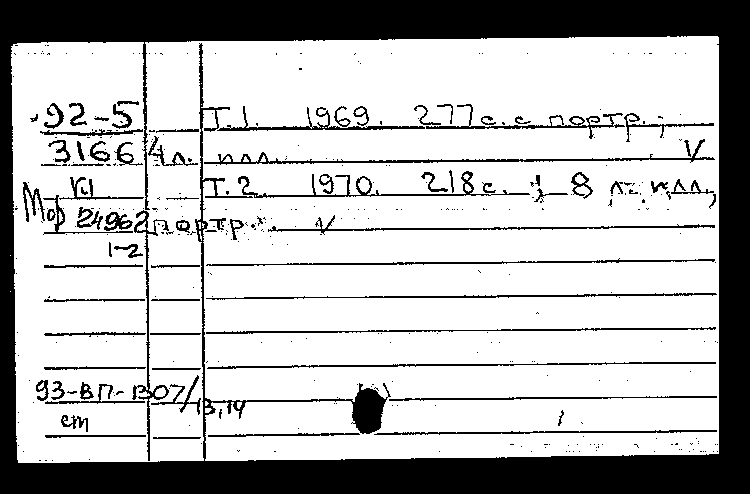 92-5 Т.1. 1969. 277 с. с портр.;
3166 4 л. илл. V
Кл Т.2. 1970. 218 с.; 8 л. илл.,
Мор 24962 портр. V
1-2
93-ВП-1307/13,14
ст